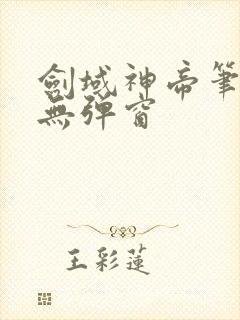 劍域神帝筆
無彈窗
王彩蓮